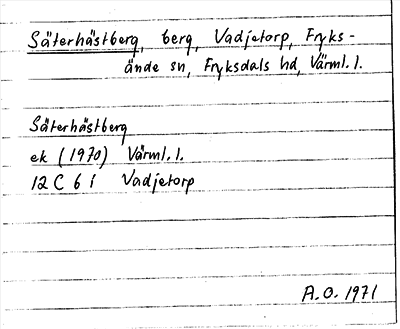 Säterhästberg, berg, Vadjetorp, Fryks-
ände sn, Fryksdals hd, Värml. l.
Säterhästberg
ek (1970) Värml. l.
12 C 6 i Vadjetorp
A.O. 1971